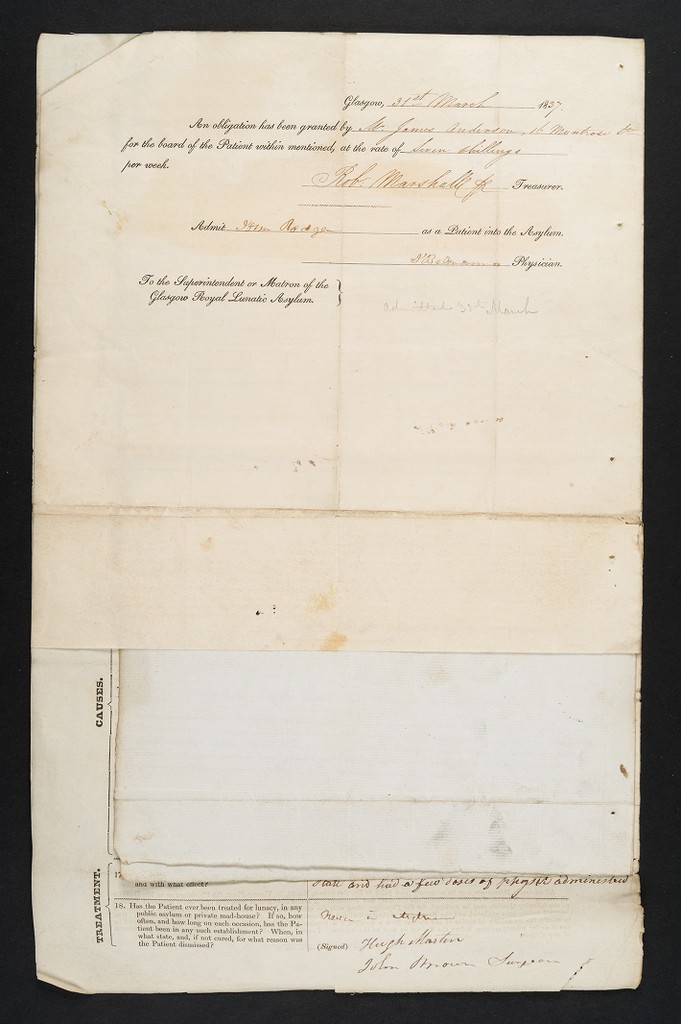 Glasgow, 31st March 1837.
An obligation has been granted by Mr James Anderson, 16 Montrose St
for the board of the Patient within mentioned, at the rate of Seven shillings
per week.
Rob. Marshall Jr Treasurer.
Admit as a Patient into the Asylum.
Physician.
To the Superintendent or Matron of the
Glasgow Royal Lunatic Asylum.
admitted 31st March
CAUSES.
TREATMENT.
17
and with what effect?
State and had a few doses of physic administed
18. Has the Patient ever been treated for lunacy, in any
public asylum or private mad-house? If so, how
often, and how long on each occasion, has the Pa-
tient been in any such establishment? When, in
what state, and, if not cured, for what reason was
the Patient dismissed?
Never in
(Signed) Hugh Martin
John Brown Surgeon